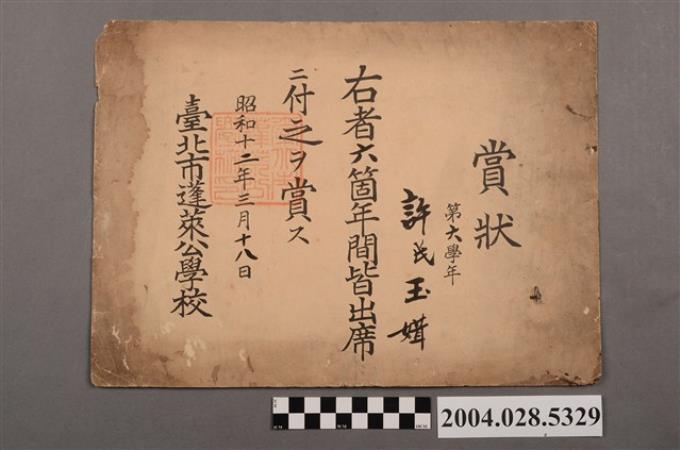 賞狀
第六學年
許氏玉娥
右者六箇年間皆出席
ニ付之ヲ賞ス
昭和十二年三月十八日
臺北市蓬萊公學校
2004.028.5329